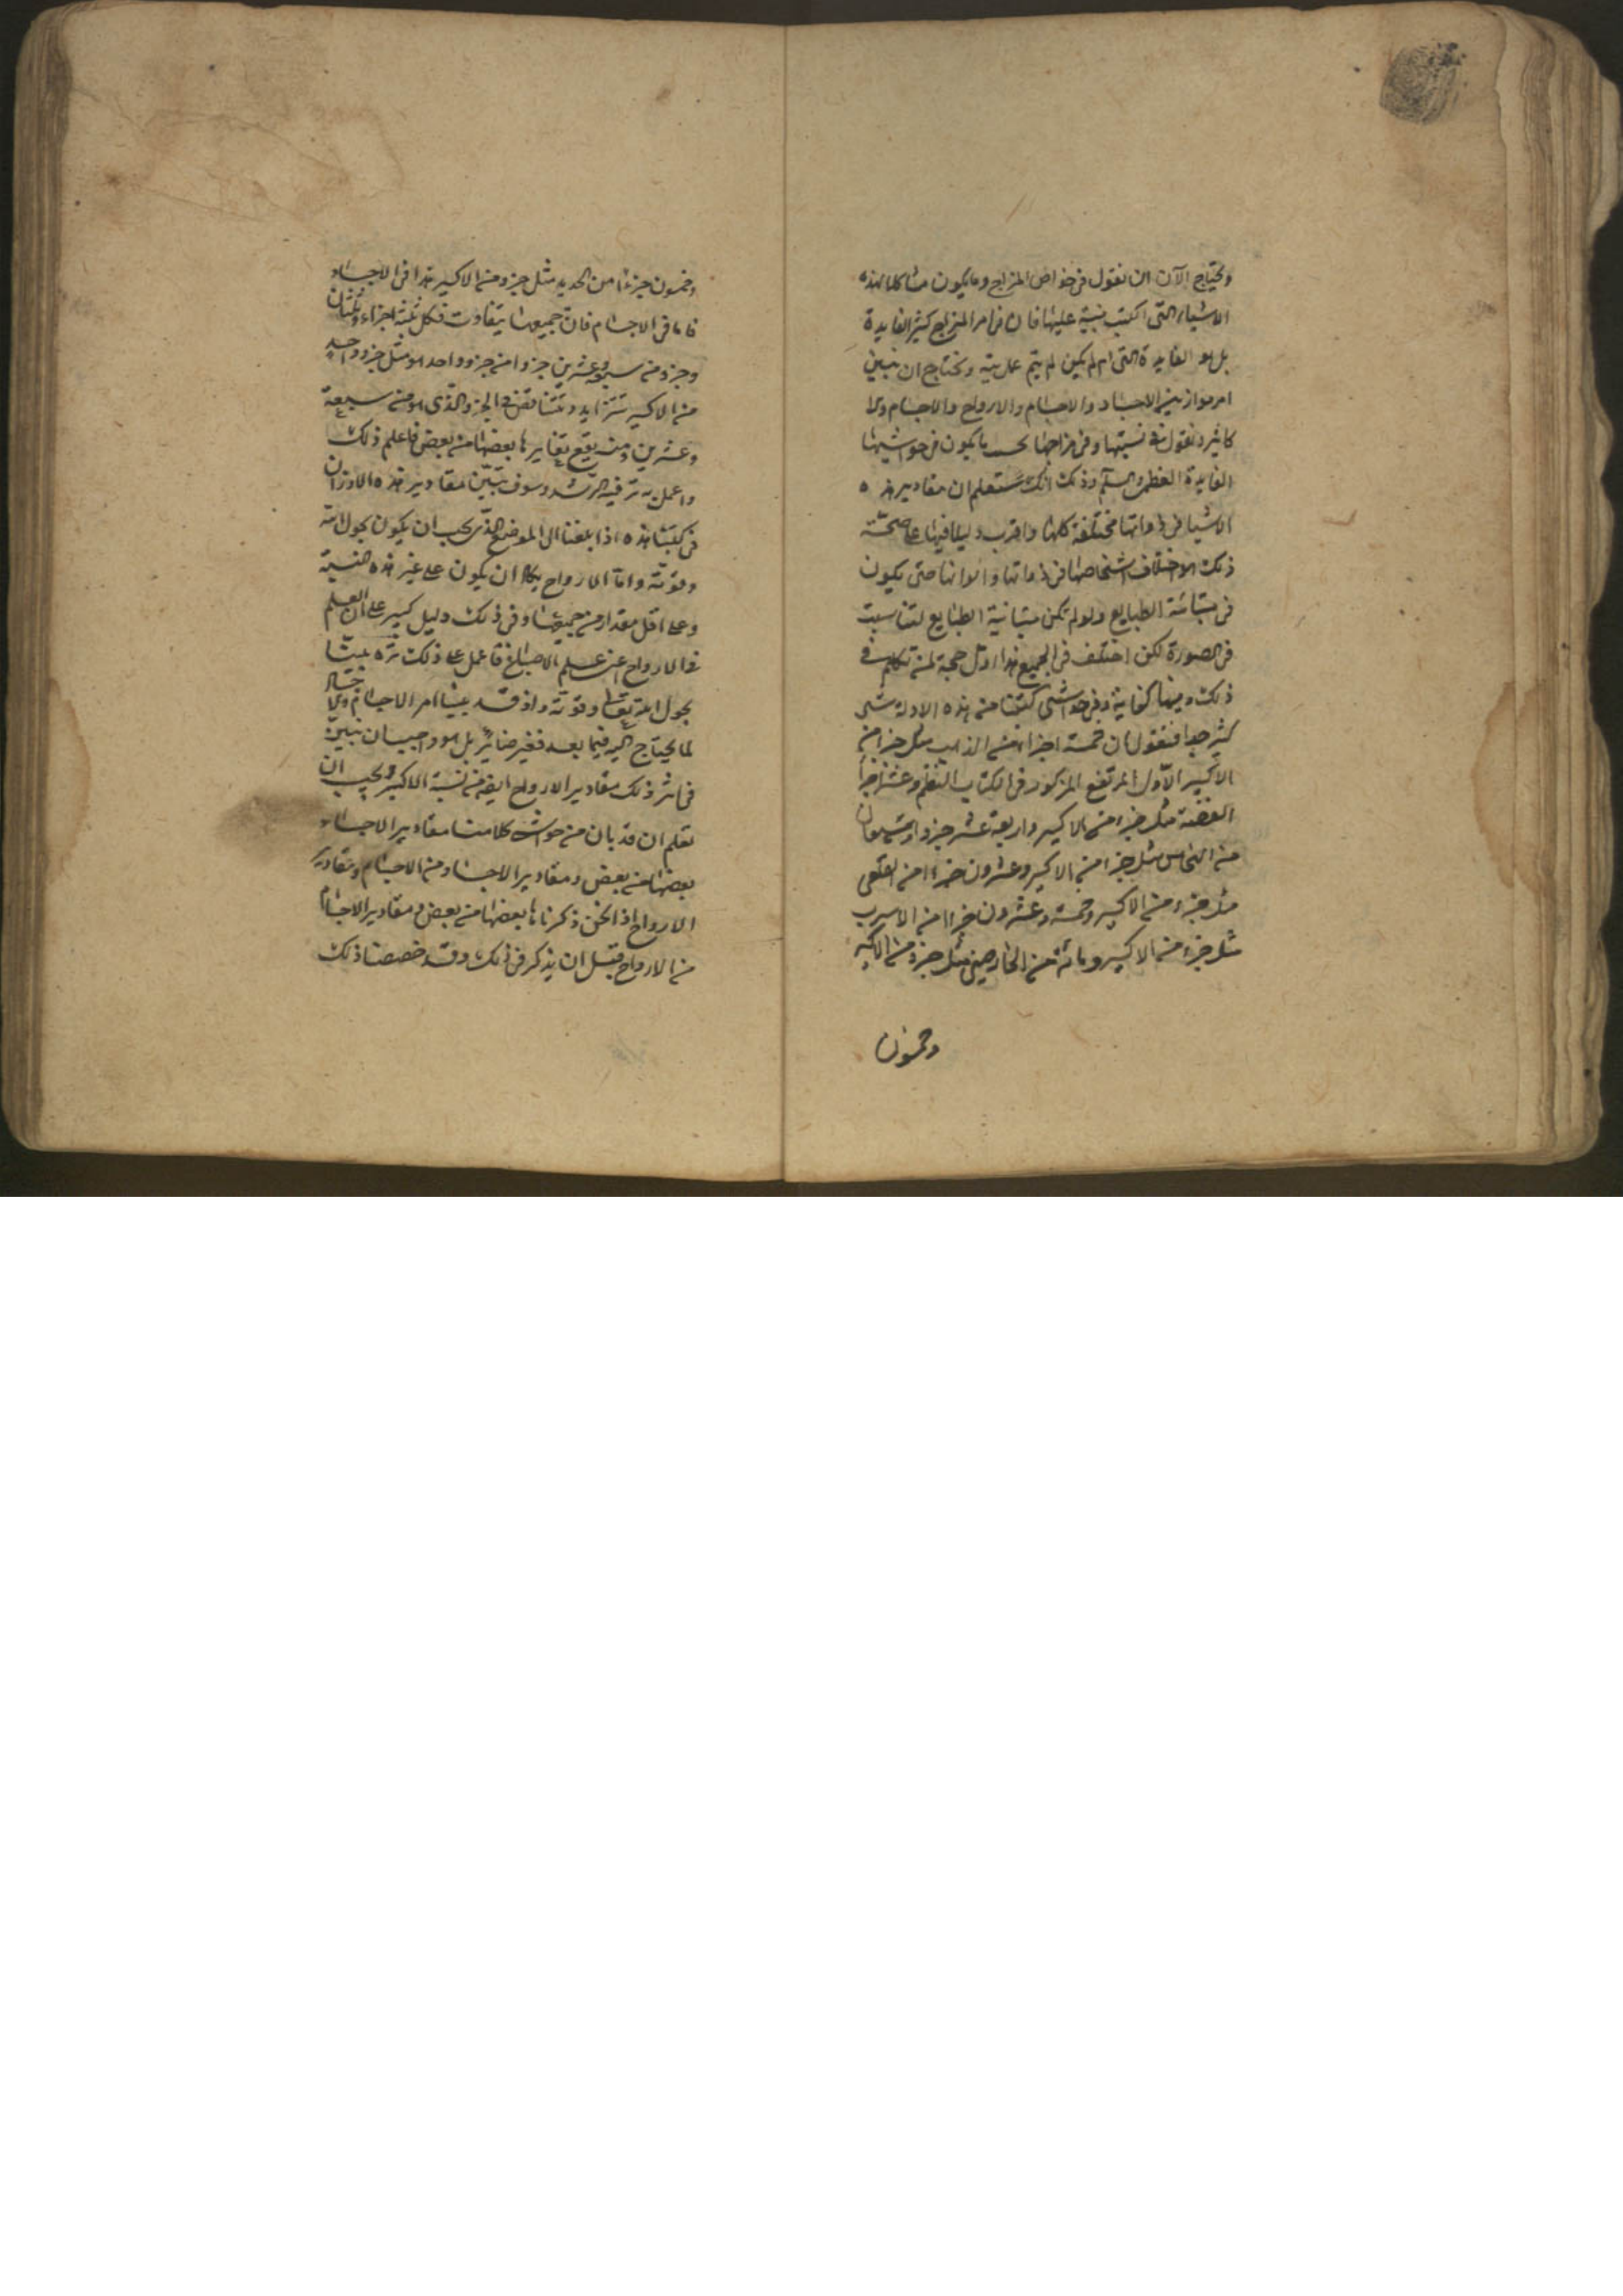 ونحتاج الآن ان نقول فى خواص المزاج وما يكون مشاكلا لهذه
الاشياء التى الكتب مبنية عليها فان فى امر المزاج كثير الفايدة
بل هو الفايدة التى ان لم يكن لم يتم عمل بتة ونحتاج ان نبين
امر موازين الاجساد والاجسام والارواح والاجسام
ونقول فى نسبتها وفى مزاجها بحسب ما يكون فى حواشيها
الفايدة العظمى وذلك انك ستعلم ان مقادير هذه
الاشيا فى ذواتها مختلفة كلها واقرب دليلا فيها على صحة
ذلك الاختلاف اشخاصها فى ذواتها والوانها حتى يكون
فى الطبايع ولو لم تكن متباينة الطبايع لتناسبت
فى الصورة لكن اختلف فى الجميع هذا اول حجة لمن تكلم فى
ذلك وفيها كفاية وفى حواشى كتبنا من هذه الادلة شى
كثير جدا فنقول ان خمسة اجزاء من الذهب مثل جزء من
الاكسير الاول المرتفع المذكور فى الكتاب النظم وعشرة اجزاء
الفضة مثل جزء من الاكسير واربعة عشر جزوا
من النحاس مثل جزء من الاكسير وعشرون جزءا من القلعى
مثل جزء من الاكسير وخمسة وعشرون جزءا من الاسرب
مثل جزء من الاكسير ومائة من الخارصينى مثل جزء من الاكسير
وخمسون
وخمسون جزءا من الحديد مثل جزو من الاكسير هذا فى الاجساد
فاما فى الاجسام فان جميعها يتفاوت فكل ثلثة اجزاء وثلثان
وجزو من سبعة وعشرين جزوا من جزو واحد هو مثل جزو واحد
من الاكسير تتزايد وتتناقص فى الجزو الذى هو من سبعة
وعشرين ومنه يقع تغايرها بعضها من بعض فاعلم ذلك
واعمل به تر فيه الرشد وسوف نبين مقادير هذه الاوزان
فى كتبنا هذه اذا بلغنا الى الموضع الذى يجب ان يكون بحول الله
وقوته واما الارواح ان يكون على غير هذه النسبة
وعلى اقل مقدار من جميعها وفى ذلك دليل كبير على ان العلم
فى الارواح اعنى علم الاصباغ فاعمل على ذلك تره بينا
بحول الله تعالى وقوته واذ قد بينا امر الاجسام
لما يحتاج اليه فيما بعد فغير ضاير بل هو واجب ان نبين
فى اثر ذلك مقادير الارواح ايضا من نسبة الاكسير ويجب ان
تعلم ان قد بان من حواشى كلامنا مقادير الاجساد
بعضها من بعض ومقادير الاجساد من الاجسام ومقادير
الارواح اذ نحن ذكرناها بعضها من بعض ومقادير الاجسام
من الارواح قبل ان يذكر فى ذلك وقد خصصنا ذلك